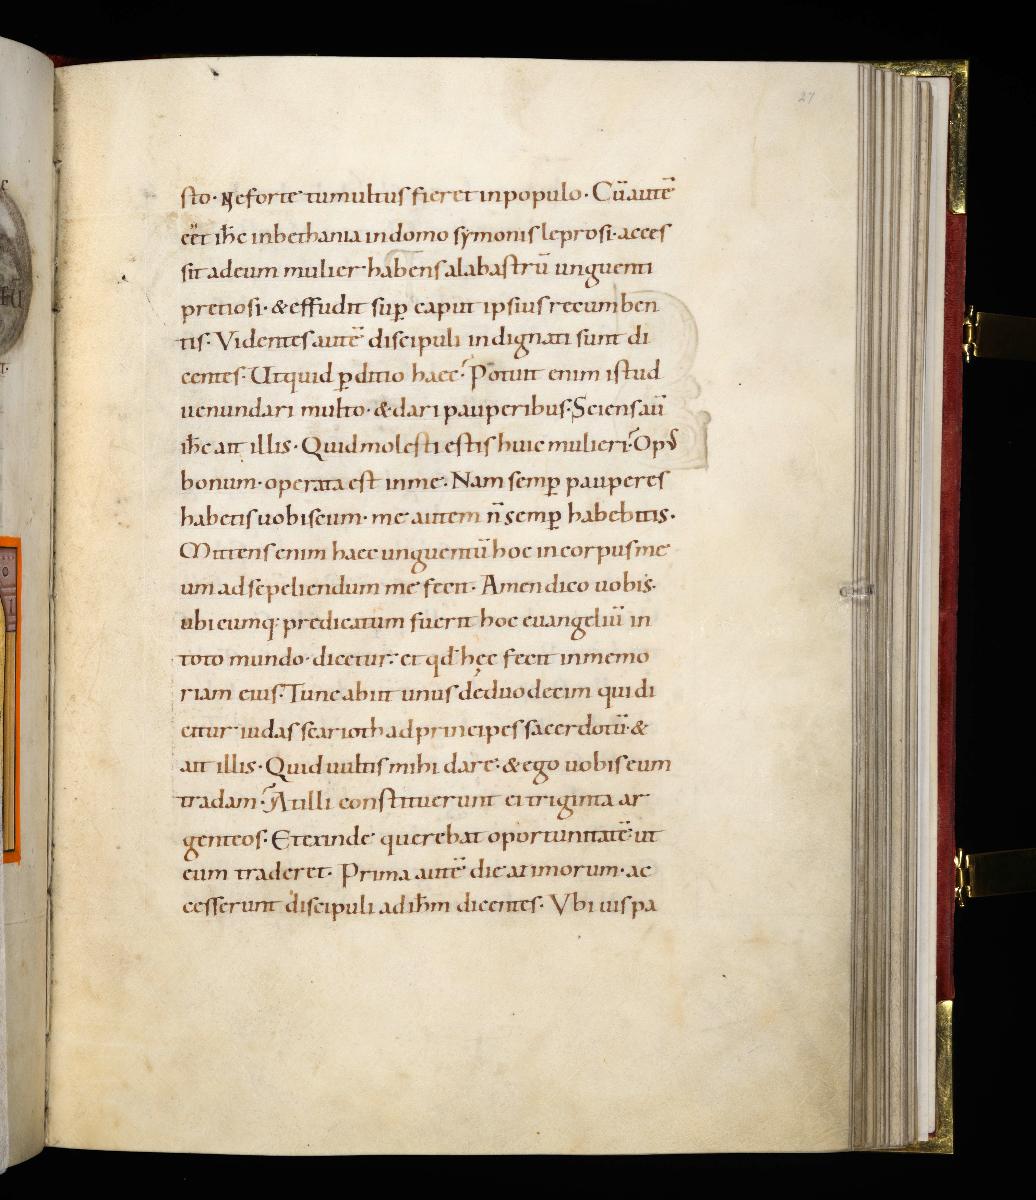 27
sto· Ne forte tumultus fieret in populo· Cū autē
eēt ih̄c in bethania in domo symonis leprosi· acces
sit ad eum mulier habens alabastrū unguenti
pretiosi· & effudit sup̱ caput ipsius recumben
tis· Videntes autē discipuli indignati sunt di
centes· Ut quid p̱ditio haec? Potuit enim istud
uenundari multo· & dari pauperibus· Sciens aū
ih̄c ait illis· Quid molesti estis huic mulieri? Opꝰ
bonum· operata est in me· Nam semp̱ pauperes
habetis uobiscum· me autem n̄ semp̱ habebitis·
Mittens enim haec unguentū hoc in corpus me
um ad sepeliendum me fecit· Amen dico uobis·
ubicumq; predicatum fuerit hoc euangeliū in
toto mundo· dicetur· et qd̄ hęc fecit in memo
riam eius· Tunc abiit unus de duodecim qui di
citur iudas scarioth ad principes sacerdotū· &
ait illis· Quid uultis mihi dare· & ego uobis eum
tradam? At illi constituerunt ei triginta ar
genteos· Et exinde querebat oportunitatē· ut
eum traderet· Prima autē die azimorum· ac
cesserunt discipuli ad ih̄m dicentes· Vbi uis pa